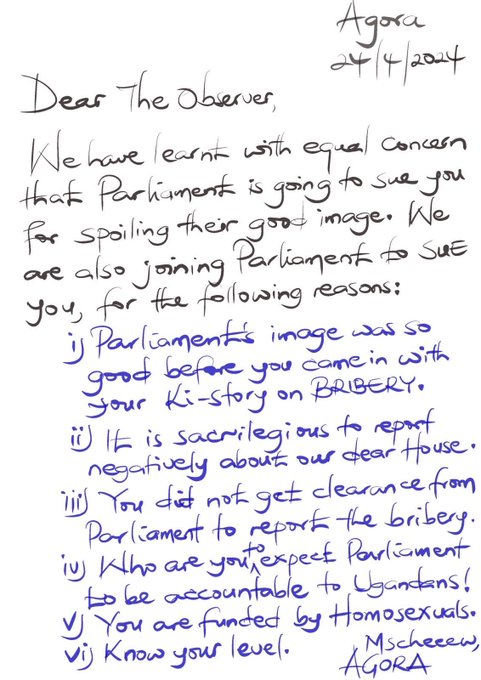 Agora
24/4/2024
Dear The Observer,
We have learnt with equal concern
that Parliament is going to sue you
for spoiling their good image. We
are also joining Parliament to SUE
you, for the following reasons:
i) Parliament's image was so
good before you came in with
your Ki-story on BRIBERY.
ii) It is sacrilegious to report
negatively about our dear House.
iii) You did not get clearance from
Parliament to report the bribery.
iv) Who are you to expect Parliament
to be accountable to Ugandans!
v) You are funded by Homosexuals.
vi) Know your level.
Mscheeew,
AGORA